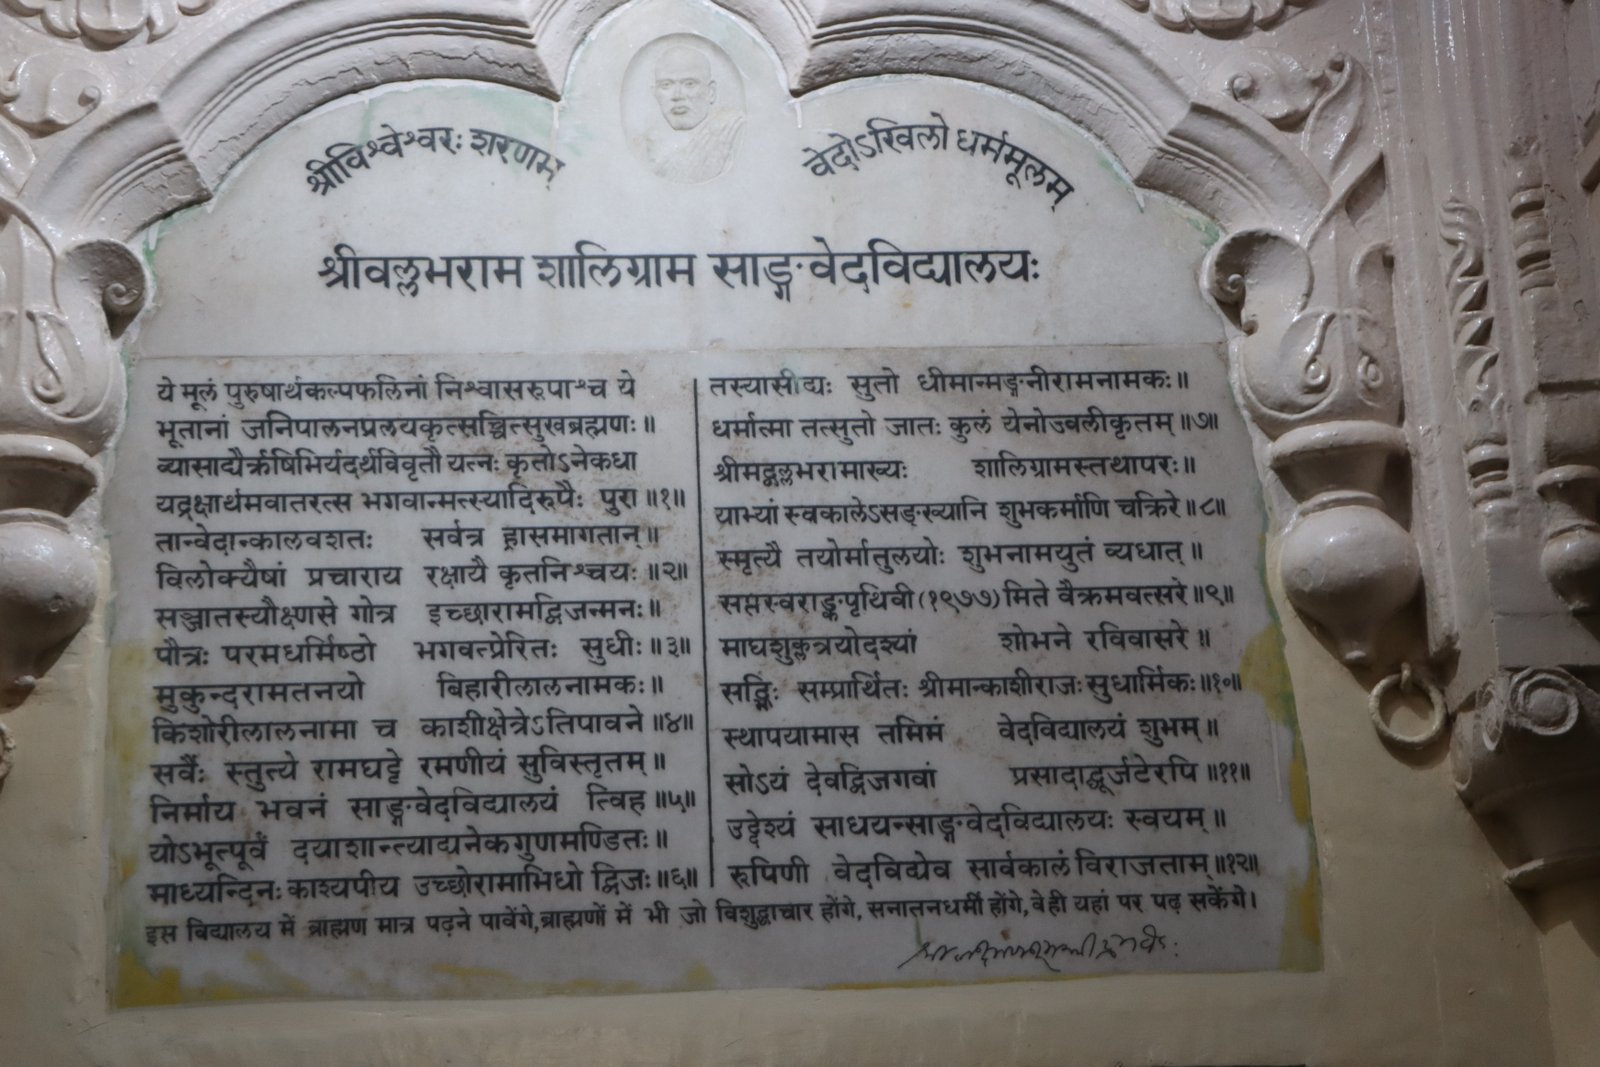 श्रीविश्वेश्वरः शरणम्
वेदोऽखिलो धर्ममूलम्
श्रीवल्लभराम शालिग्राम साङ्गवेदविद्यालयः
ये मूलं पुरुषार्थकल्पफलिनां निश्वासरुपाश्च ये
भूतानां जनिपालनप्रलयकृत्सच्चित्सुखब्रह्मणः॥
व्यासाद्यैर्ऋषिभिर्यदर्थविवृतौ यत्नः कृतोऽनेकधा
यद्रक्षार्थमवातरत्स भगवान्मत्स्यादिरुपैः पुरा॥१॥
तान्वेदान्कालवशतः सर्वत्र ह्रासमागतान्॥
विलोक्यैषां प्रचाराय रक्षायै कृतनिश्चयः॥२॥
सञ्जातस्यौक्ष्णसे गोत्र इच्छारामद्विजन्मनः॥
पौत्रः परमधर्मिष्ठो भगवत्प्रेरितः सुधीः॥३॥
मुकुन्दरामतनयो बिहारीलालनामकः॥
किशोरीलालनामा च काशीक्षेत्रेऽतिपावने॥४॥
सर्वैः स्तुत्ये रामघट्टे रमणीयं सुविस्तृतम्॥
निर्माय भवनं साङ्गवेदविद्यालयं त्विह॥५॥
योऽभूत्पूर्वं दयाशान्त्याद्यनेकगुणमण्डितः॥
माध्यन्दिनः काश्यपीय उच्छोरामाभिधो द्विजः॥६॥
तस्यासीद्यः सुतो धीमान्मङ्गनीरामनामकः॥
धर्मात्मा तत्सुतो जातः कुलं येनोज्वलीकृतम्॥७॥
श्रीमद्वल्लभरामाख्यः शालिग्रामस्तथापरः॥
याभ्यां स्वकालेऽसङ्ख्यानि शुभकर्माणि चक्रिरे॥८॥
स्मृत्यै तयोर्मातुलयोः शुभनामयुतं व्यधात्॥
सप्तस्वराङ्कपृथिवी(१९७७)मिते वैक्रमवत्सरे॥९॥
माघशुक्लत्रयोदश्यां शोभने रविवासरे॥
सद्भिः सम्प्रार्थितः श्रीमान्काशीराजः सुधार्मिकः॥१०॥
स्थापयामास तमिमं वेदविद्यालयं शुभम्॥
सोऽयं देवद्विजगवां प्रसादाद्धूर्जटेरपि॥११॥
उद्देश्यं साधयन्साङ्गवेदविद्यालयः स्वयम्॥
रुपिणी वेदविद्येव सार्वकालं विराजताम्॥१२॥
इस विद्यालय में ब्राह्मण मात्र पढ़ने पावेंगे, ब्राह्मणों में भी जो विशुद्धाचार होंगे, सनातनधर्मी होंगे, वे ही यहां पर पढ़ सकेंगे।